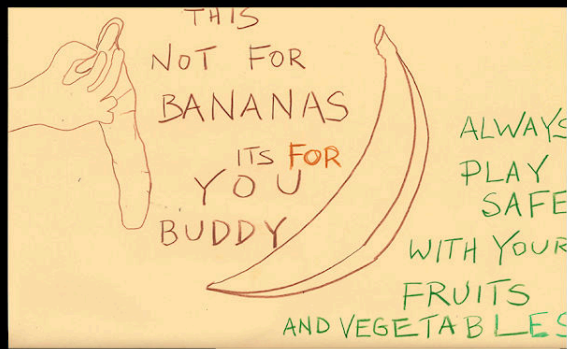 THIS
NOT FOR
BANANAS
ITS FOR
YOU
BUDDY
ALWAYS
PLAY
SAFE
WITH YOUR
FRUITS
AND VEGETABLES